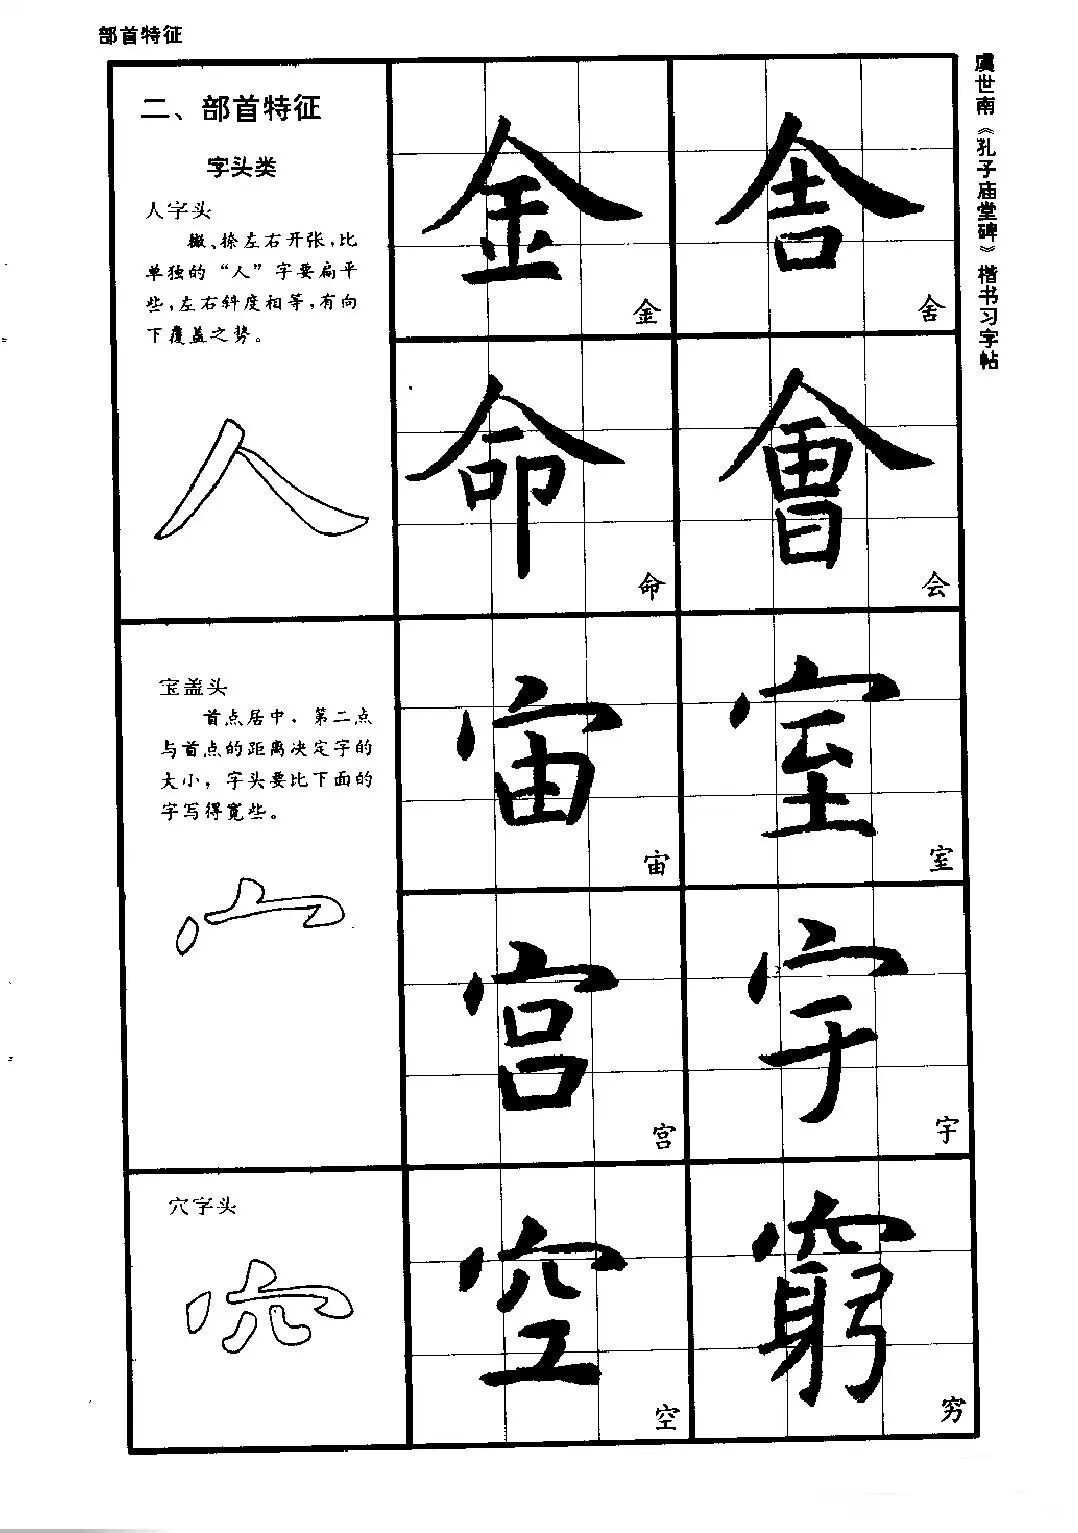 部首特征
虞世南《孔子庙堂碑》楷书习字帖
二、部首特征
字头类
人字头
撇、捺左右开张，比
单独的“人”字要扁平
些，左右斜度相等，有向
下覆盖之势。
人
金
金
舍
舍
命
命
會
会
宝盖头
首点居中，第二点
与首点的距离决定字的
大小，字头要比下面的
字写得宽些。
宀
宙
宙
室
室
宫
宫
宇
宇
穴字头
穴
空
空
窮
穷